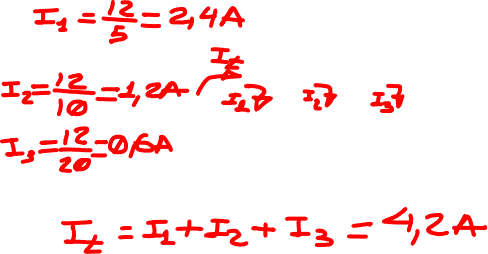 I₁ = 12/5 = 2,4A
I₂ = 12/10 = 1,2A
It
I₁ I₂ I₃
I₃ = 12/20 = 0,6A
It = I₁ + I₂ + I₃ = 4,2A